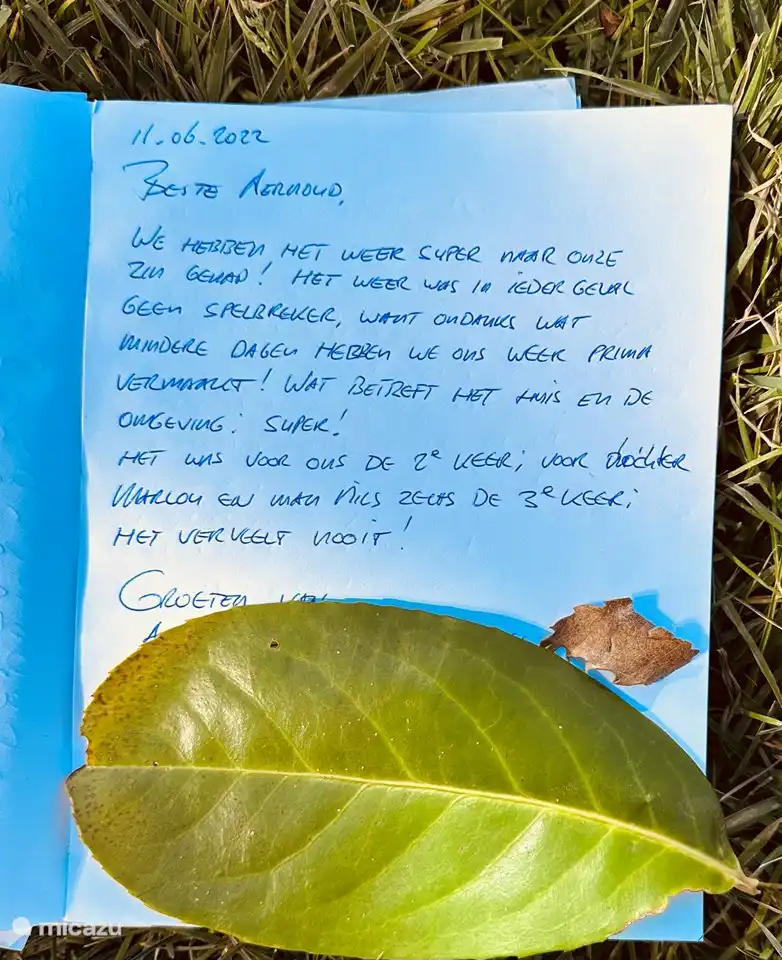 11.06.2022
BESTE AERNOUD,
WE HEBBEN HET WEER SUPER NAAR ONZE
ZIN GEHAD! HET WEER WAS IN IEDER GEVAL
GEEN SPELBREKER, WANT ONDANKS WAT
MINDERE DAGEN HEBBEN WE ONS WEER PRIMA
VERMAAKT! WAT BETREFT HET HUIS EN DE
OMGEVING: SUPER!
HET WAS VOOR ONS DE 2e KEER; VOOR DOCHTER
MARLOU EN MAN NILS ZELFS DE 3e KEER;
HET VERVEELT NOOIT!
GROETEN VAN
micazu